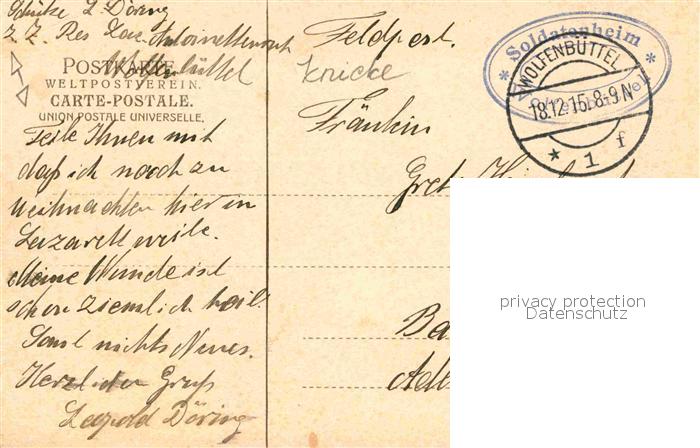 Schütze L. Döring
z. Z. Res. Laz. Antoinettenruh
Wolfenbüttel
POSTKARTE
WELTPOSTVEREIN.
CARTE-POSTALE.
UNION POSTALE UNIVERSELLE.
Teile Ihnen mit
daß ich noch zu
Weihnachten hier im
Lazarett weile.
Meine Wunde ist
schon ziemlich heil.
Sonst nichts Neues.
Herzlichen Gruß
Leopold Döring
Feldpost.
knicke
Fräulein
Gret
Ba
Adl
* Soldatenheim *
WOLFENBÜTTEL
18.12.15.8-9N
* 1 f
privacy protection
Datenschutz